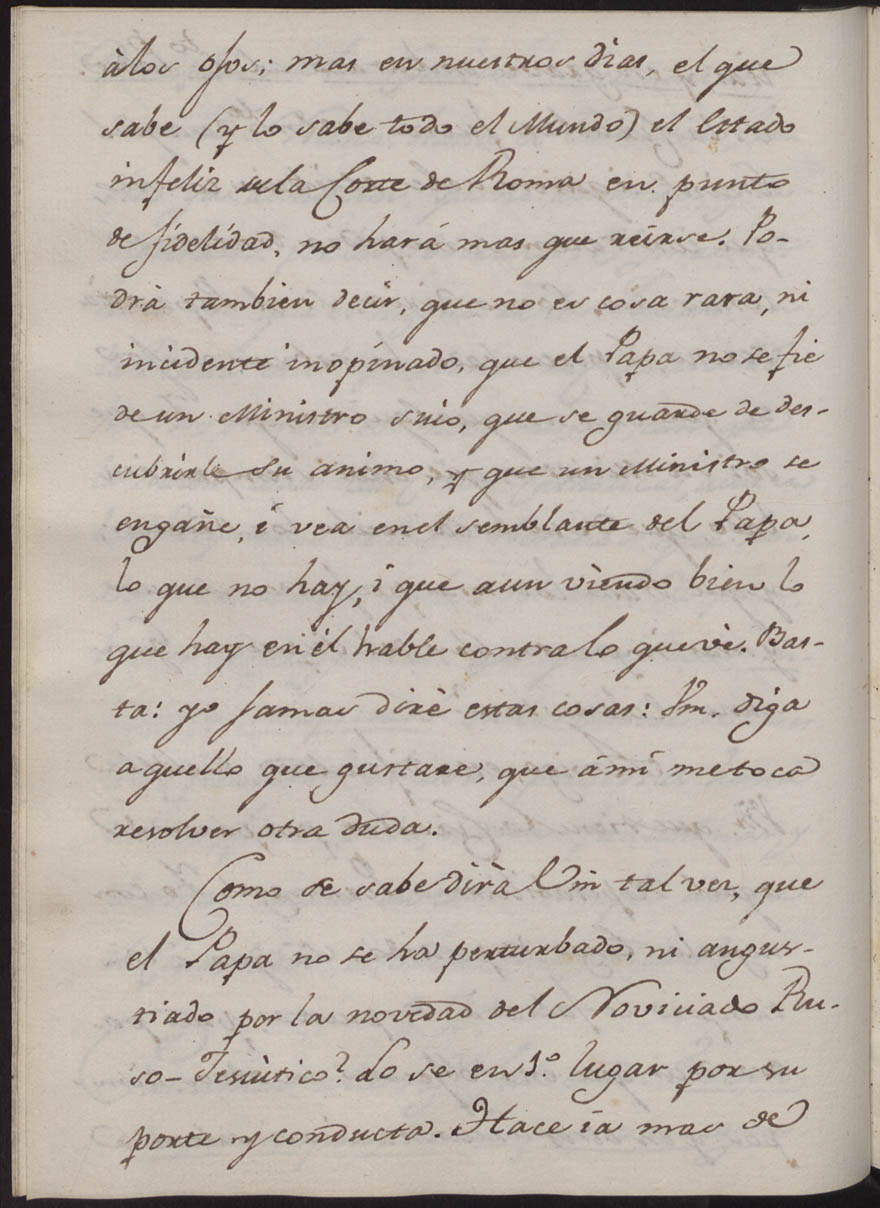 à los ojos; mas en nuestros dias, el que
sabe (y lo sabe todo el Mundo) el Estado
infeliz de la Corte de Roma en punto
de fidelidad, no hará mas que reirse. Po-
drà tambien decir, que no es cosa rara, ni
incidente inopinado, que el Papa no se fie
de un Ministro suio, que se guarde de des-
cubrirle su animo, y que un Ministro se
engañe, i vea en el semblante del Papa,
lo que no hay, i que aun viendo bien lo
que hay en èl hable contra lo que vè. Bas-
ta: yo jamas dirè estas cosas: Vm. diga
aquello que gustare, que á mi me toca
resolver otra duda.
Como se sabe dirà Vm tal vez, que
el Papa no se ha perturbado, ni angus-
tiado por la novedad del Noviciado Ru-
so-Jesuitico? Lo se en 1.º lugar por su
porte y conducta. Hace ia mas de